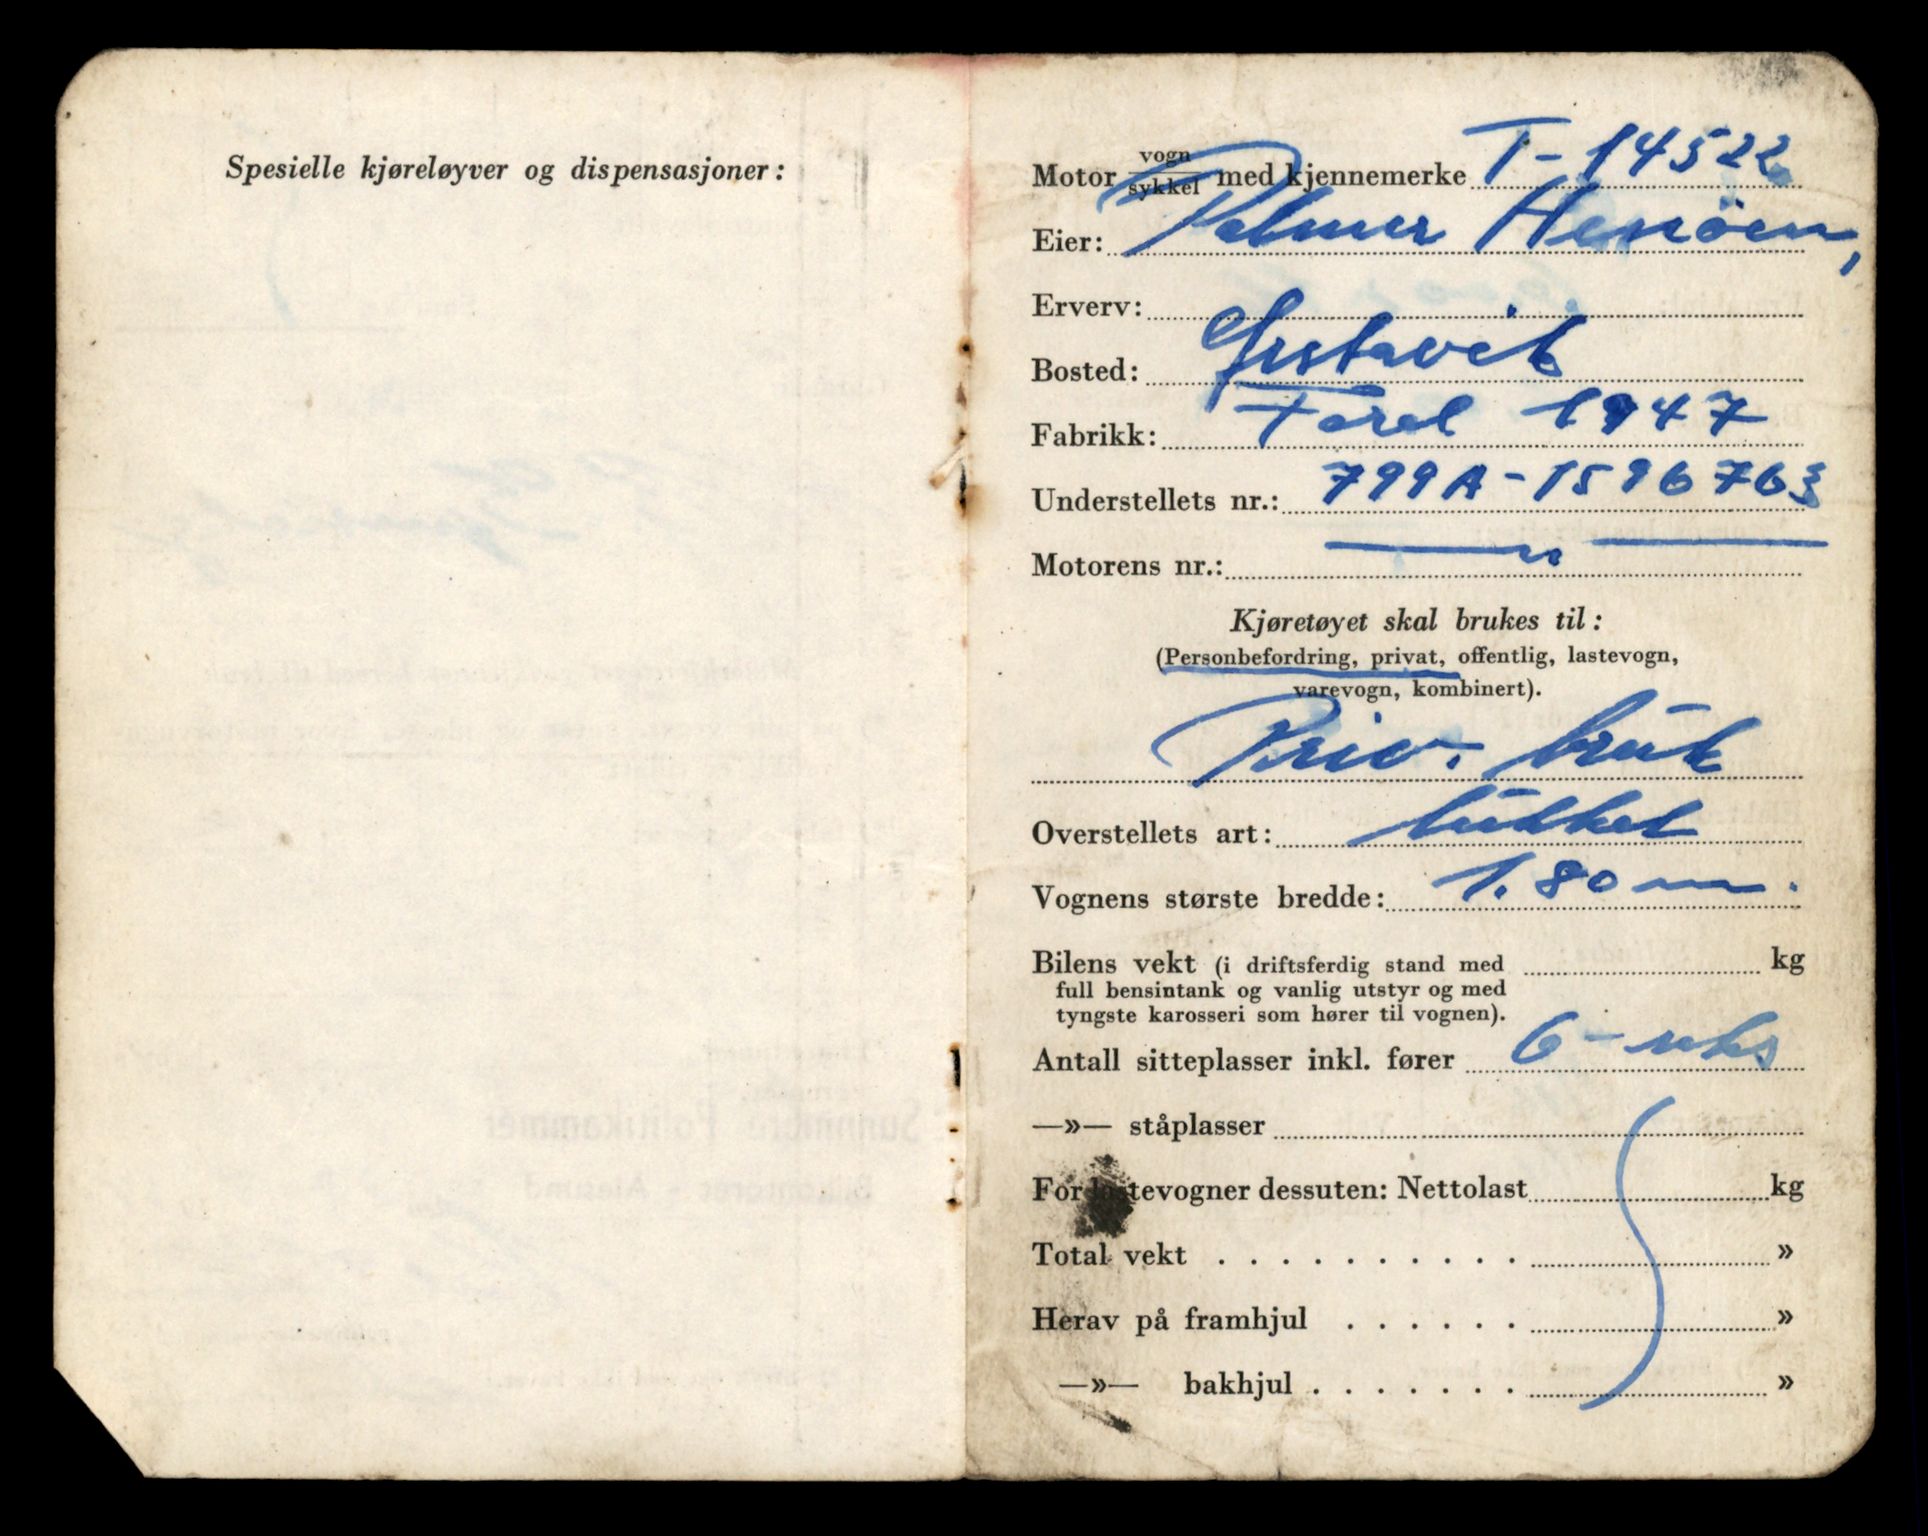 Spesielle kjøreløyver og dispensasjoner:
Motor vogn/sykkel med kjennemerke T-14522
Eier: Palmer Henöen,
Erverv:
Bosted: Gurskevik
Fabrikk: Ford 1947
Understellets nr.: 799A-1596763
Motorens nr.: — " —
Kjøretøyet skal brukes til:
(Personbefordring, privat, offentlig, lastevogn,
varevogn, kombinert).
Priv. bruk
Overstellets art: lukket
Vognens største bredde: 1.80 m.
Bilens vekt (i driftsferdig stand med kg
full bensintank og vanlig utstyr og med
tyngste karosseri som hører til vognen).
Antall sitteplasser inkl. fører 6 - seks
—»— ståplasser
For lastevogner dessuten: Nettolast kg
Total vekt . . . . . . . . . . »
Herav på framhjul . . . . . . »
—»— bakhjul . . . . . . . »